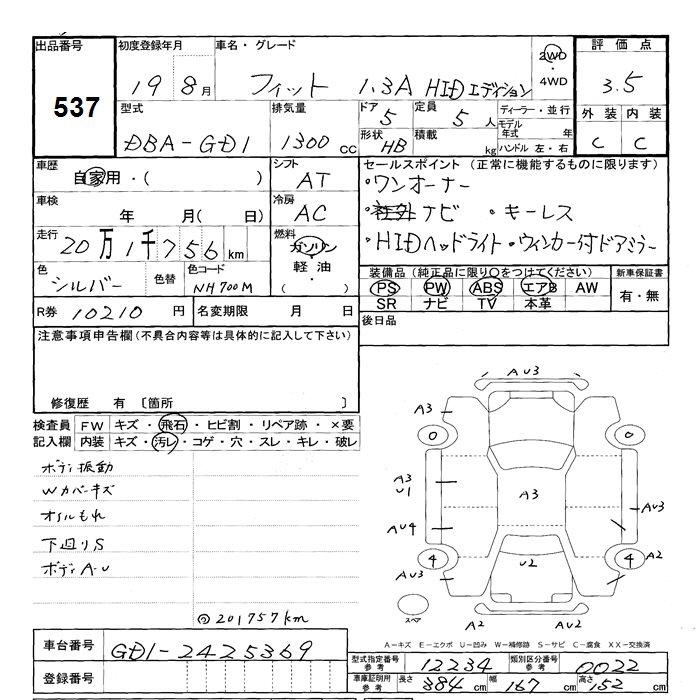 出品番号 初度登録年月 車名・グレード 2WD 4WD 評価点
537 19 8月 フィット 1.3A HIDエディション 3.5
型式 排気量 ドア 定員 ディーラー・並行 外装 内装
DBA-GD1 1300cc 5 5人 モデル年式 年 C C
形状 積載 ハンドル 左・右
HB kg
車歴 シフト セールスポイント(正常に機能するものに限ります)
自家用・( ) AT ・ワンオーナー
車検 冷房 ・社外ナビ ・キーレス
年 月(日) AC ・HIDヘッドライト・ウィンカー付ドアミラー
走行 燃料
20万1千756km ガソリン
軽油・( )
色 色替 色コード
シルバー NH700M
装備品(純正品に限り○をつけてください) 新車保証書
PS PW ABS エアB AW 有・無
SR ナビ TV 本革
R券 10210円 名変期限 月 日 後日品
注意事項申告欄(不具合内容等は具体的に記入して下さい)
修復歴 有 〔箇所 〕
検査員 FW キズ・飛石・ヒビ割・リペア跡・×要
記入欄 内装 キズ・汚レ・コゲ・穴・スレ・キレ・破レ
ボディ振動
Wカバーキズ
オイルもれ
下廻りS
ボディA-U
201757km
AU3
A3
0 0
A3
U1
A3
AU3
AU4
4 4 A2
AU3 U2
スペア
A2 AU2
A-キズ E-エクボ U-凹み W-補修跡 S-サビ C-腐食 XX-交換済
車台番号 GD1-2425369
登録番号
型式指定番号 参考 12234 類別区分番号 参考 0022
車庫証明用 参考 長さ 384cm 幅 167cm 高さ 152cm